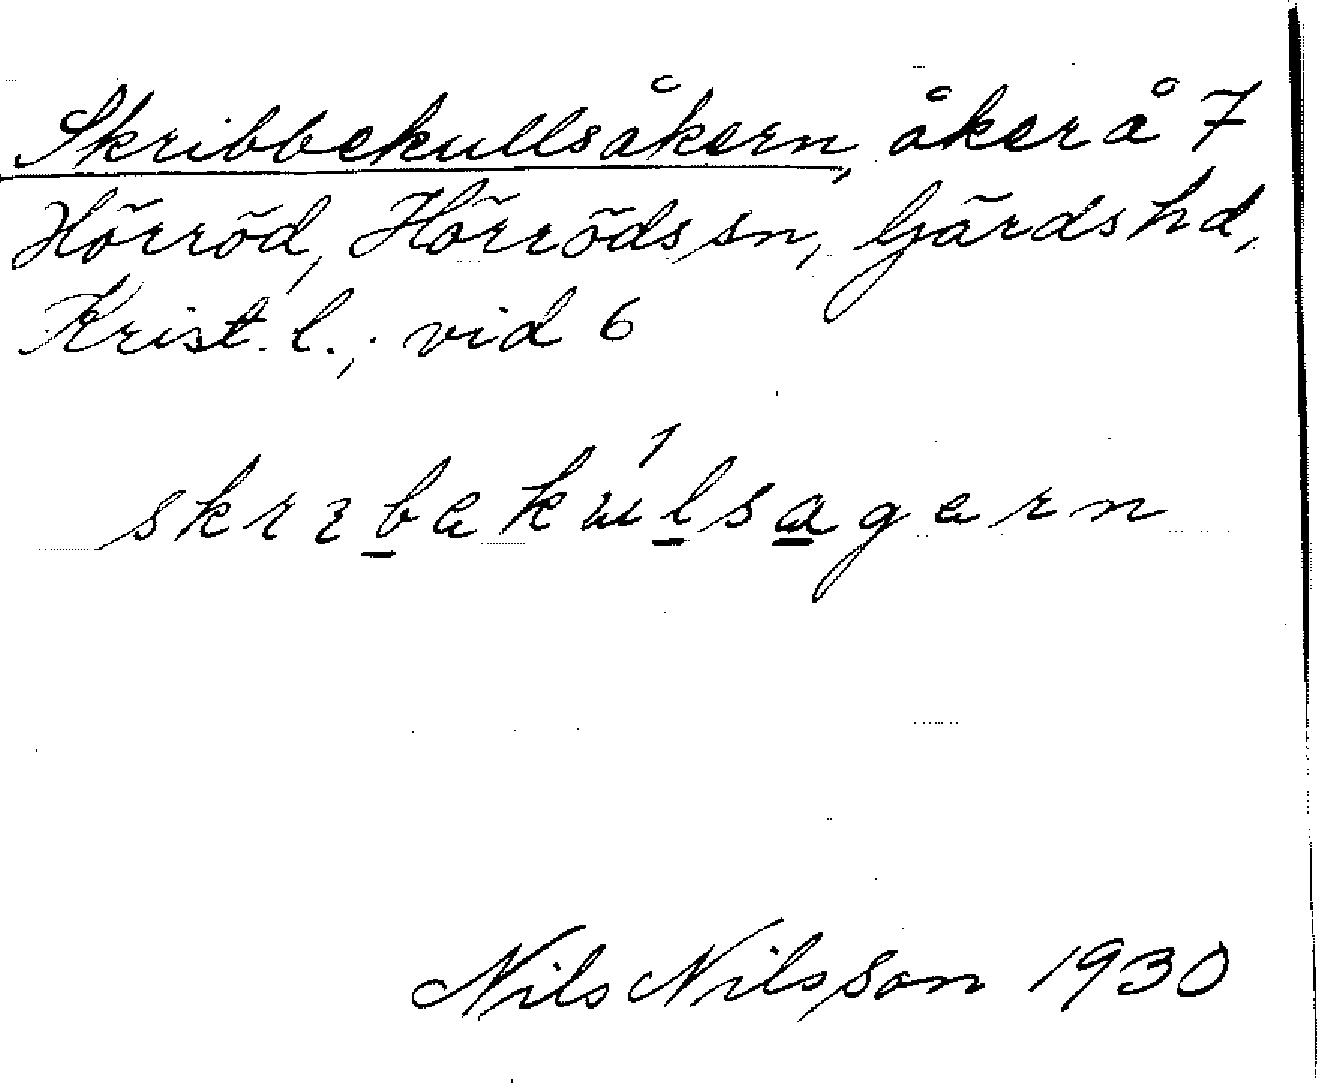 Skribbekullsåkern, åker å 7
Hörröd, Hörröds sn, Gärds hd,
Krist. l.; vid 6
skrɪbekúlsagern
Nils Nilsson 1930